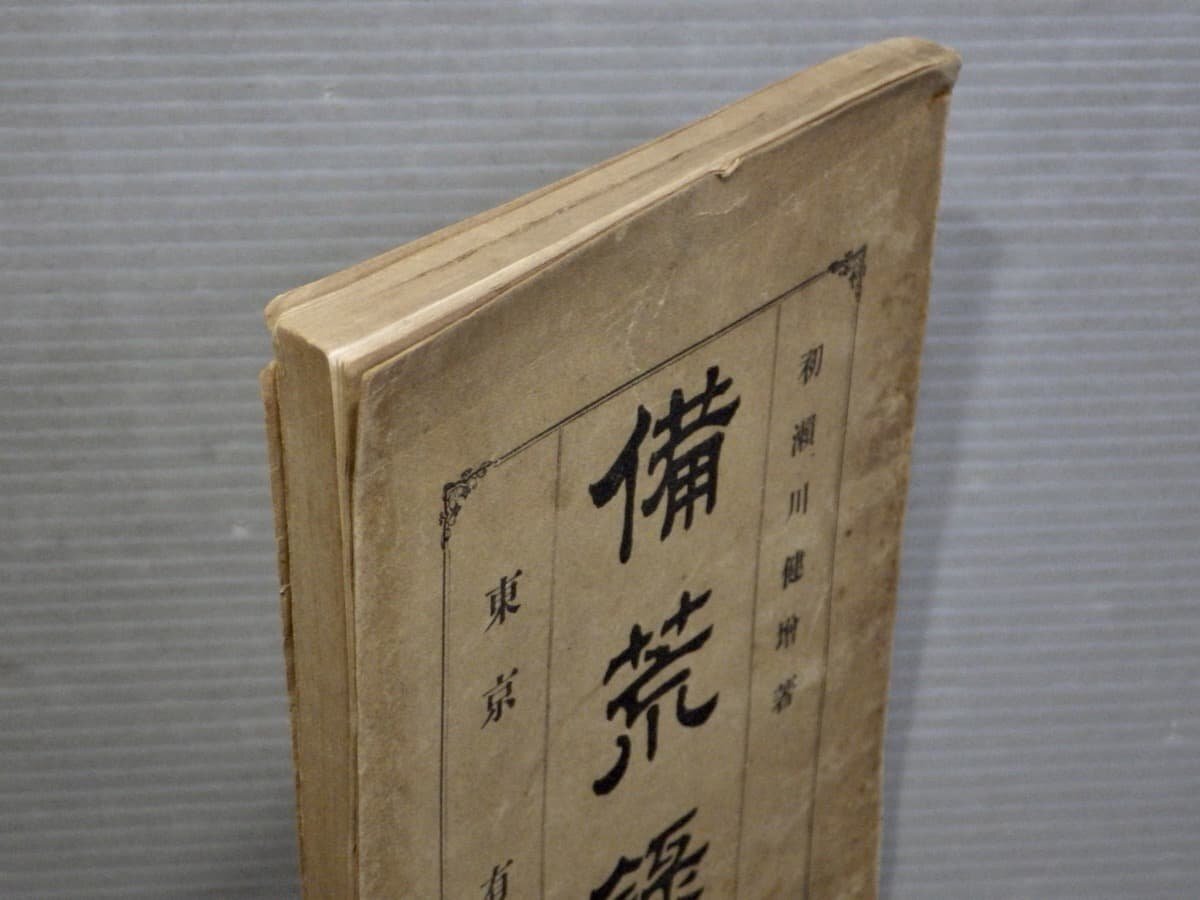 初瀬川健増著
備荒録
東京 有